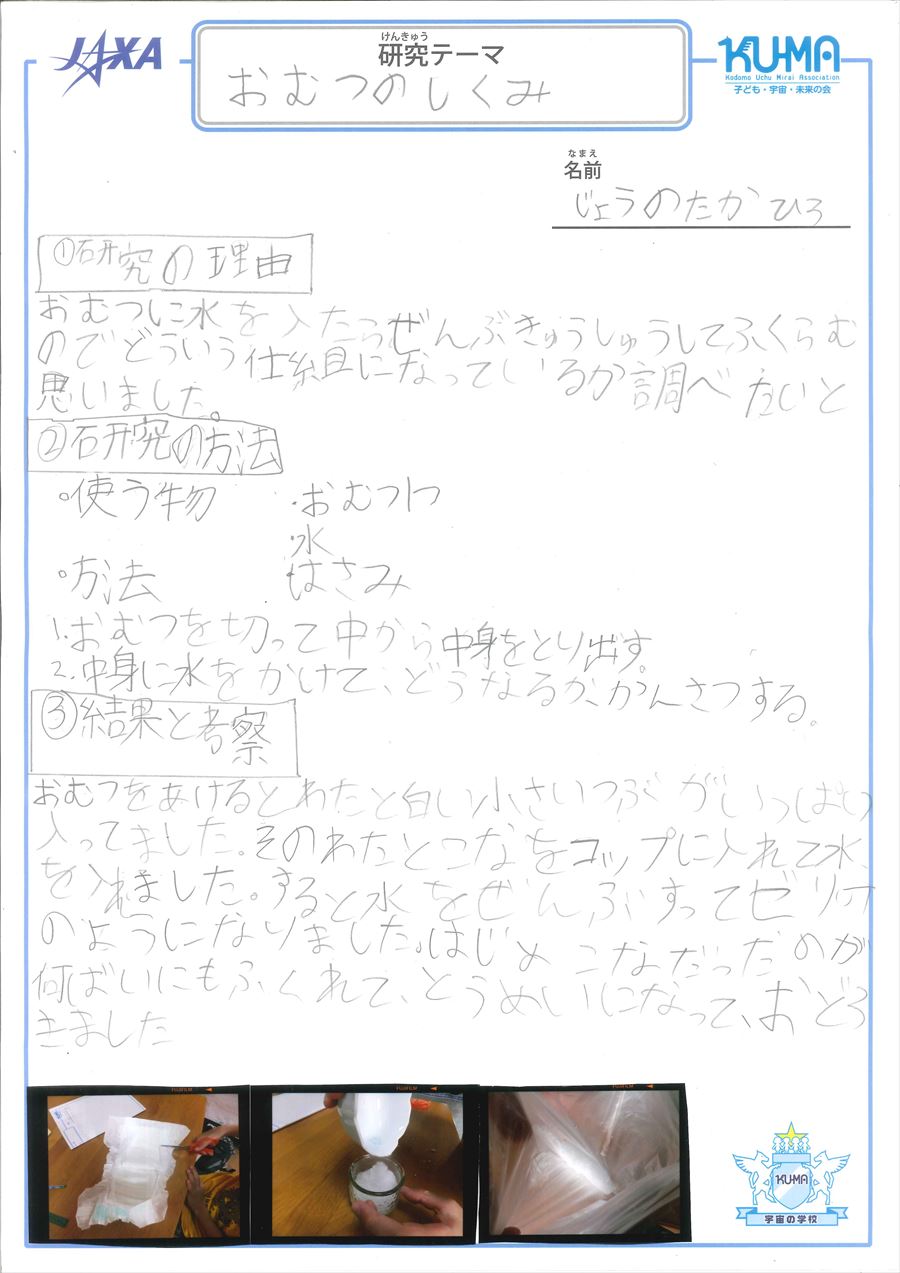 JAXA
けんきゅう
研究テーマ
KU-MA
Kodomo Uchu Mirai Association
子ども・宇宙・未来の会
おむつのしくみ
なまえ
名前
じょうのたかひろ
①研究の理由
おむつに水を入たらぜんぶきゅうしゅうしてふくらむ
のでどういう仕組になっているか調べたいと
思いました。
②研究の方法
・使う物 ・おむつ
・水
・方法 はさみ
1.おむつを切って中から中身をとり出す。
2.中身に水をかけて、どうなるか、かんさつする。
③結果と考察
おむつをあけるとわたと白い小さいつぶがいっぱい
入ってました。そのわたとこなをコップに入れて水
を入れました。すると水をぜんぶすってゼリー
のようになりました。はじめこなだったのが
何ばいにもふくれて、とうめいになって、おどろ
きました
KU-MA
宇宙の学校